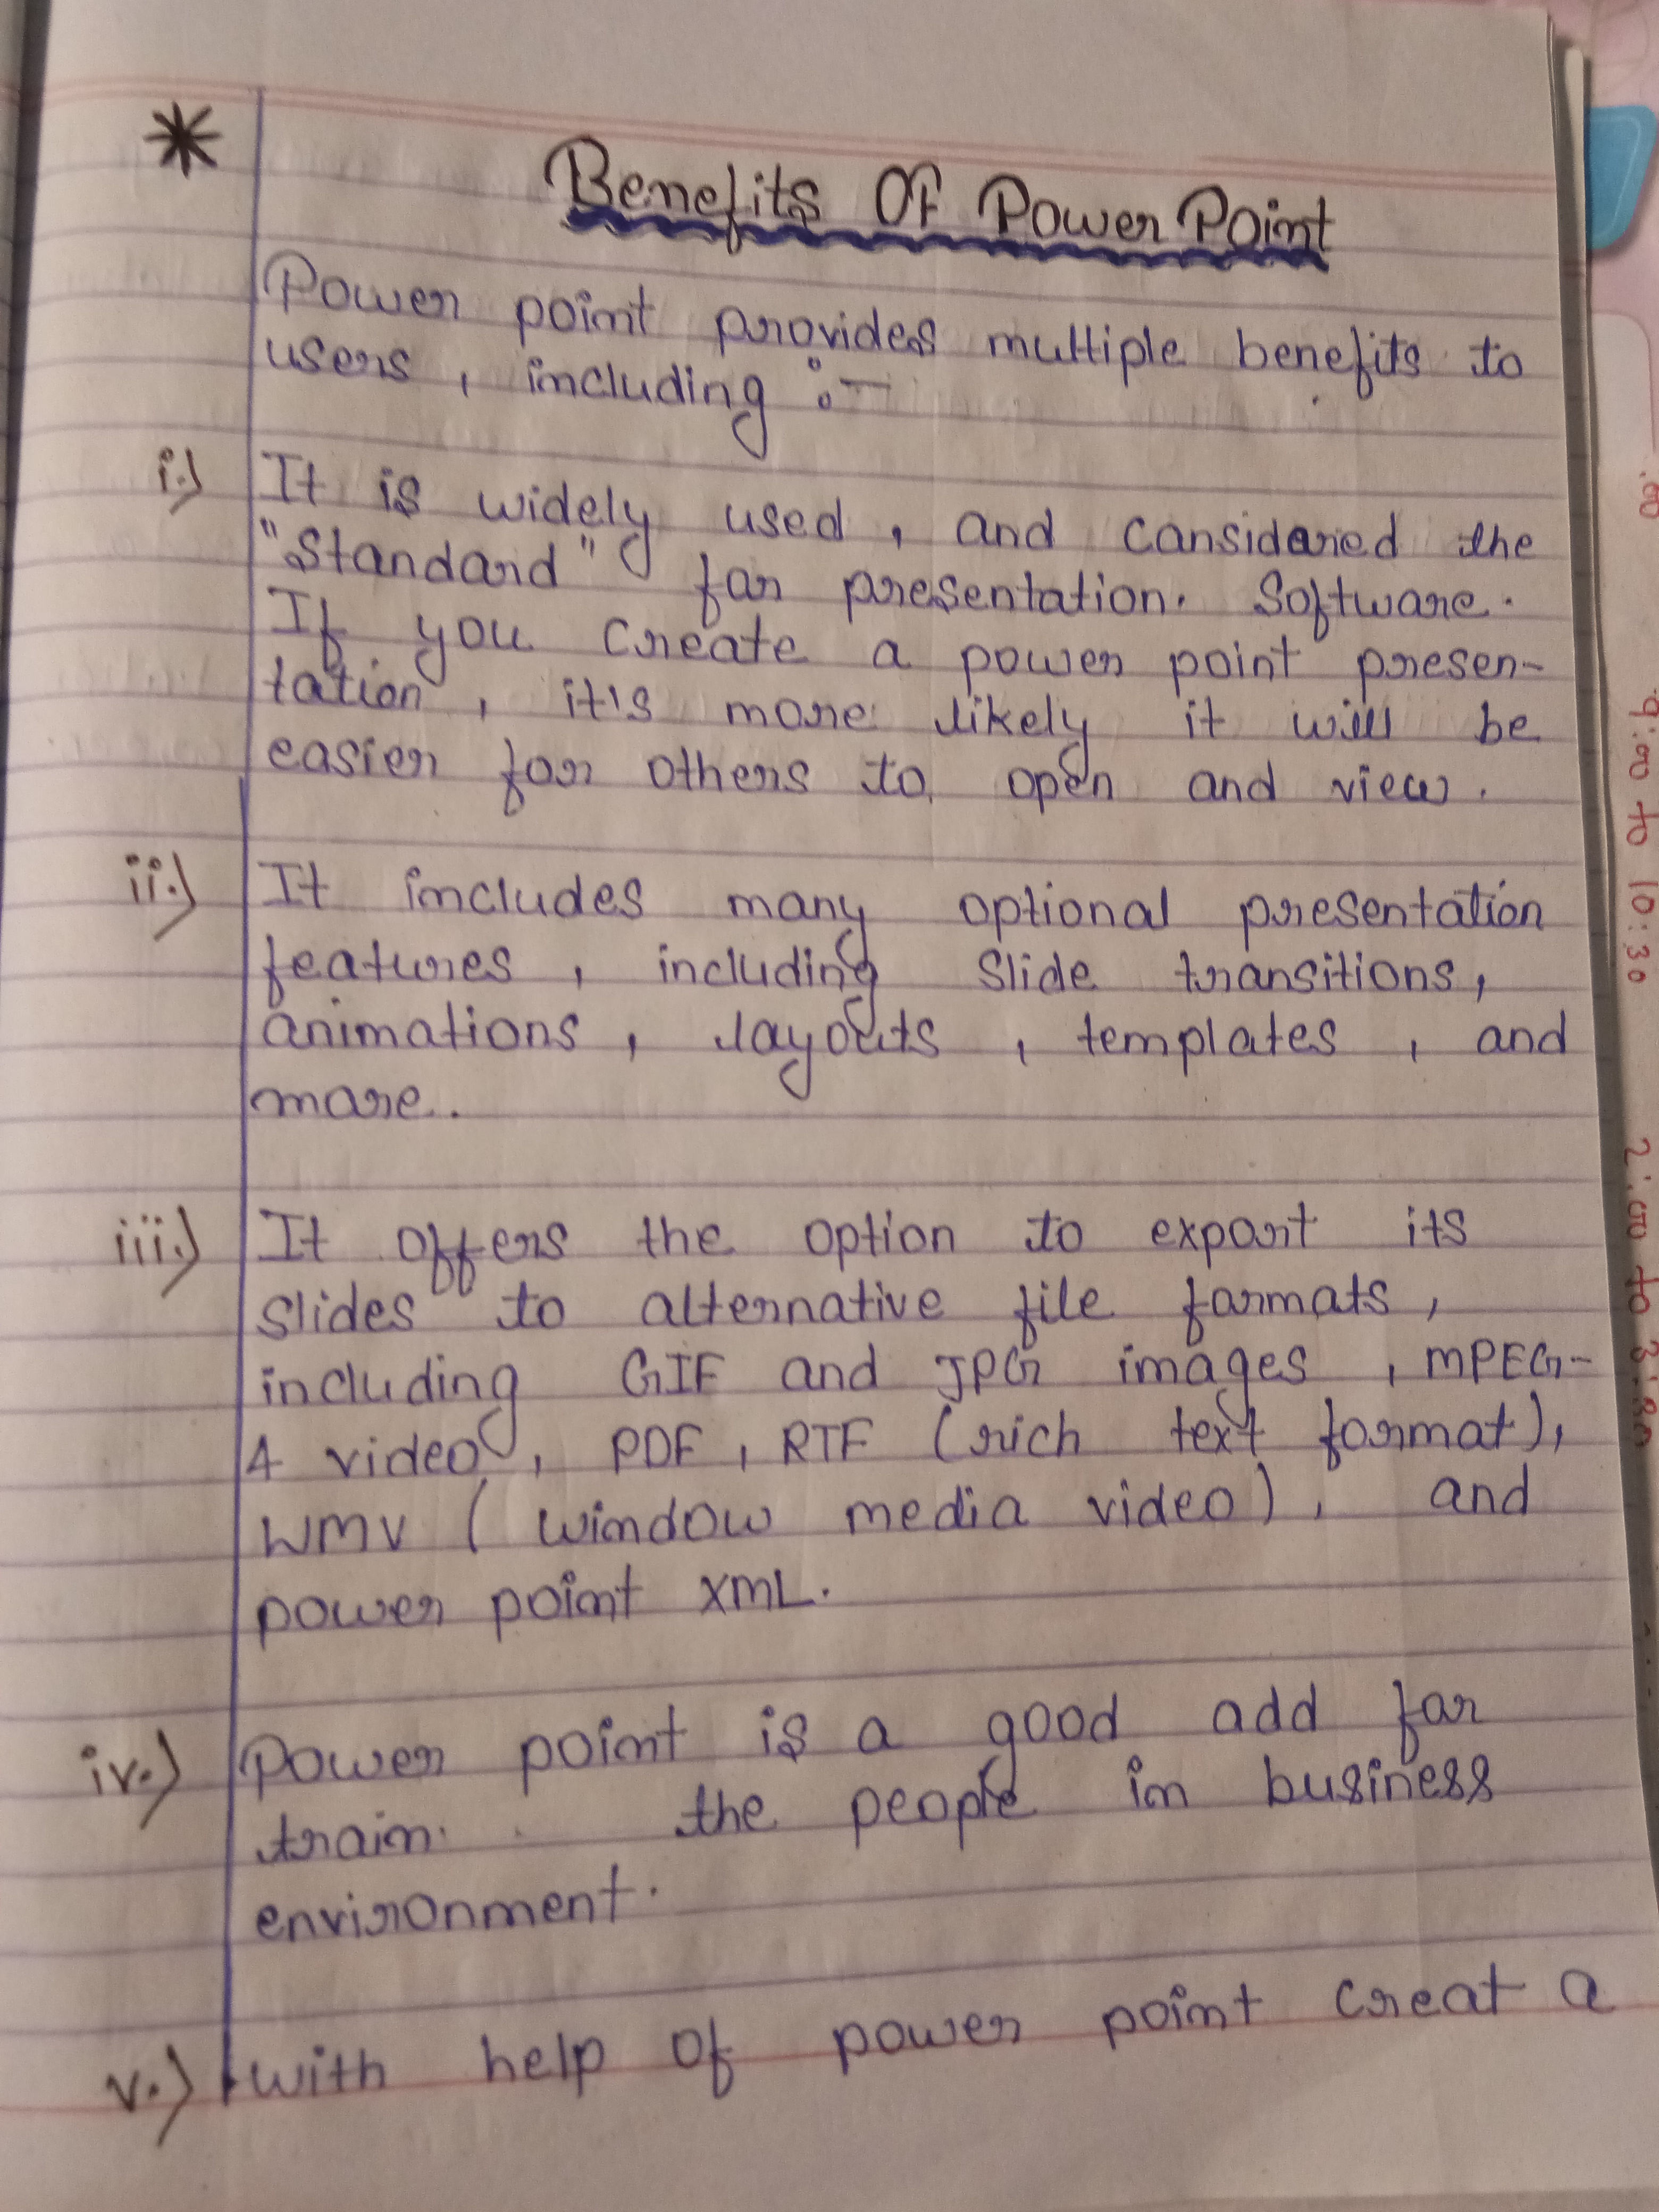 *
Benefits Of Power Point
Power point provides multiple benefits to
users, including :-
i.) It is widely used, and cansidered the
"Standard" far presentation. Software.
If you create a power point presen-
tation, it's more likely it will be
easier for others to open and view.
ii.) It includes many optional presentation
features, including slide transitions,
animations, layouts, templates, and
mare.
iii.) It offers the option to export its
slides to alternative file farmats,
including GIF and JPG images, MPEG-
4 video, PDF, RTF (rich text format),
WMV (window media video), and
power point XML.
iv.) Power point is a good add far
train. the people in business
environment.
v.) with help of power point creat a
9:00 to 10:30
2:00 to 3:30